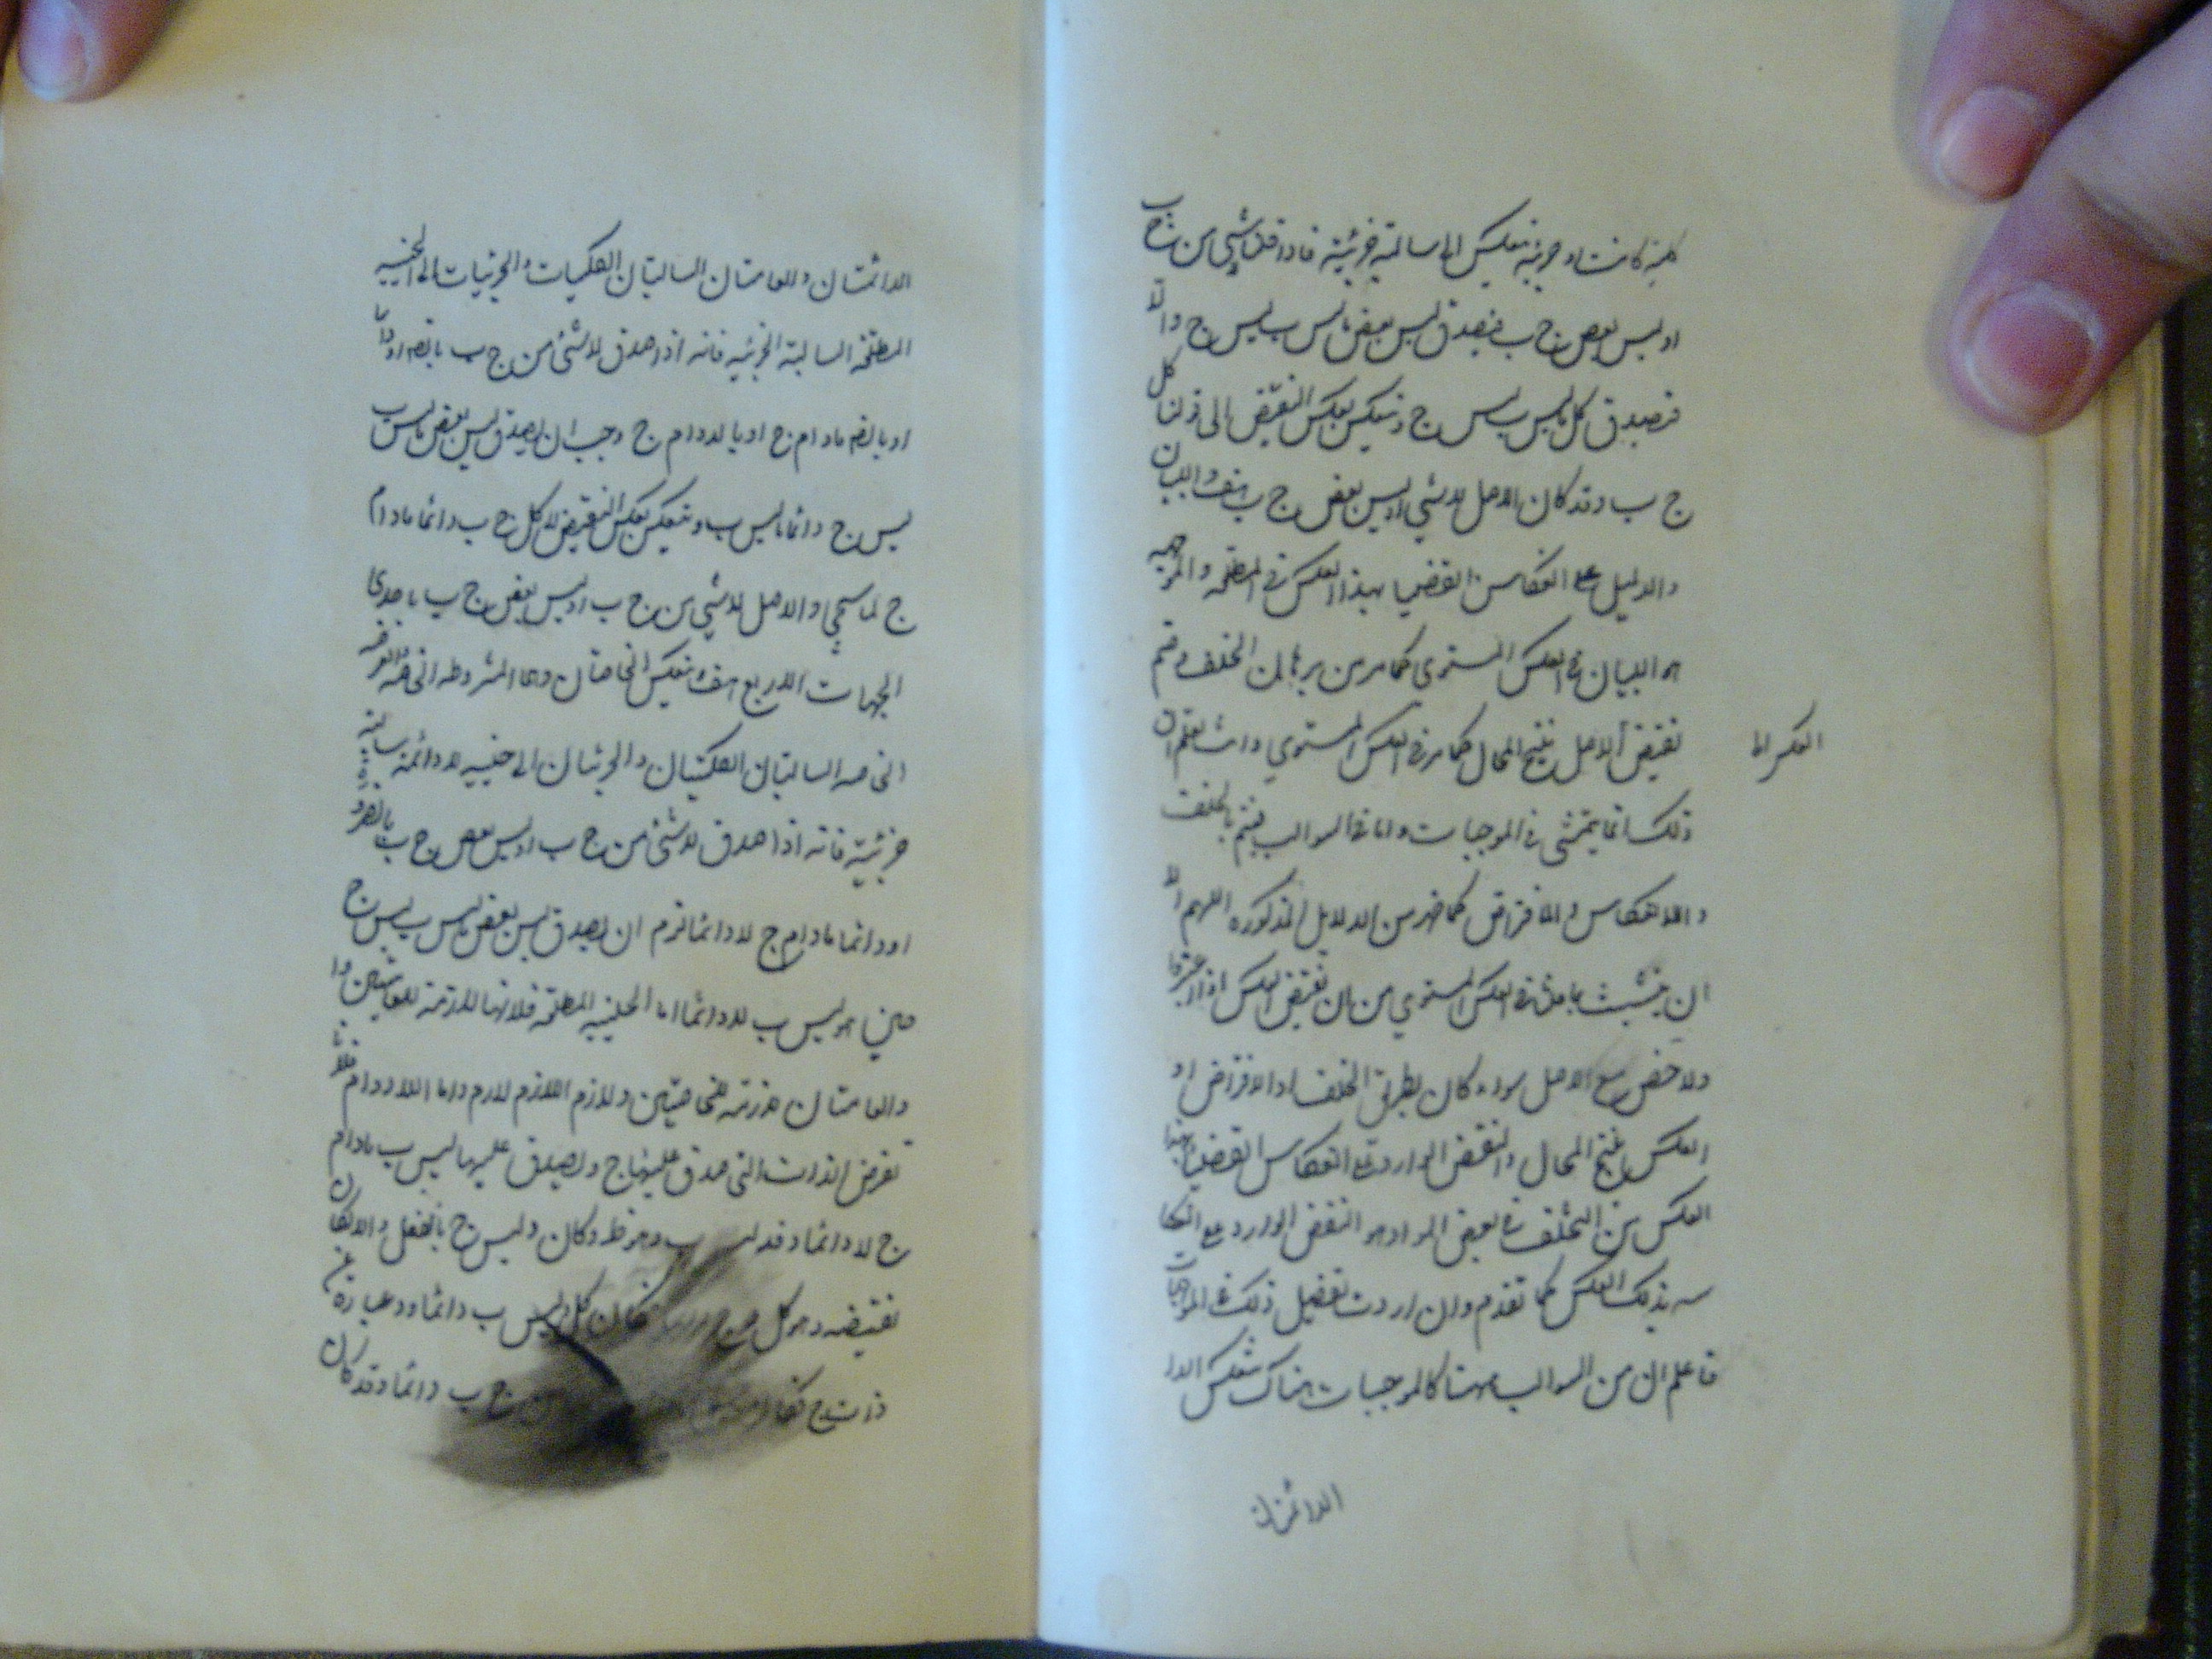 كلية كانت او جزئية تنعكس الى سالبة جزئية فاذا قلنا لا شيء من ج ب
او ليس بعض ج ب فيصدق ليس بعض ما ليس ب ليس ج والا
فيصدق كل ما ليس ب ليس ج وتنعكس بعكس النقيض الى قولنا كل
ج ب وقد كان الاصل لا شيء او ليس بعض ج ب هف والبيان
والدليل على انعكاس القضايا بهذا العكس في المطلقة والموجهة
هو البيان في العكس المستوي كما مر من برهان الخلف وضم
نقيض الاصل ينتج المحال كما مر في العكس المستوي وانت تعلم ان
العكس الى
ذلك انما يتمشى في الموجبات واما في السوالب فيتم بالخلف
والانعكاس والافتراض كما ظهر من الدلايل المذكوره اللهم الا
ان يتشبث بما مر في العكس المستوي من ان نقيض العكس اذا
ولاحظ مع الاصل سواء كان بطريق الخلف او الافتراض او
العكس ينتج المحال والنقض الوارد على انعكاس القضايا بهذا
العكس من التخلف في بعض المواد هو النقض الوارد على انعكا
سه بذلك العكس كما تقدم وان اردت تفصيل ذلك في الموجهات
فاعلم ان من السوالب ههنا كالموجبات هناك تنعكس الدا
الدائمتان
الدائمتان والعامتان السالبتان الكليات والجزئيات الى الحينية
المطلقة السالبة الجزئيه فانه اذا صدق لا شئ من ج ب بالضم او دائما
او بالضم مادام ج او بالدوام ج وجب ان يصدق ليس بعض ما ليس ب
ليس ج دائما ما ليس ب وتنعكس بعكس النقيض الى كل ج ب دائما مادام
ج لما سيجئ والاصل لا شيء من ج ب او ليس بعض ج ب باحدى
الجهات الاربع هف وتنعكس الخاصتان وهما المشروطه الخاصه والعرفية
الخاصه السالبتان الكليتان والجزئيتان الى حينيه لا دائمة سالبة
جزئية فانه اذا صدق لا شئ من ج ب او ليس بعض ج ب بالضرورة
او دائما مادام ج لا دائما لزم ان يصدق ليس بعض ما ليس ب ليس ج
حين هو ليس ب لا دائما اما الحينيه المطلقة فلانها لازمة للعامتين وا
والعامتان لازمة للخاصتين ولازم اللازم لازم واما اللادوام فلانا
نفرض الذات التي صدق عليها ج ويصدق عليها ليس ب مادام
ج لا دائما وقد ب وهو ظ وكان وليس ج بالفعل والا لكان
نقيضه وهو كل ب دائما
ذات ج ج ب دائما وقد كان